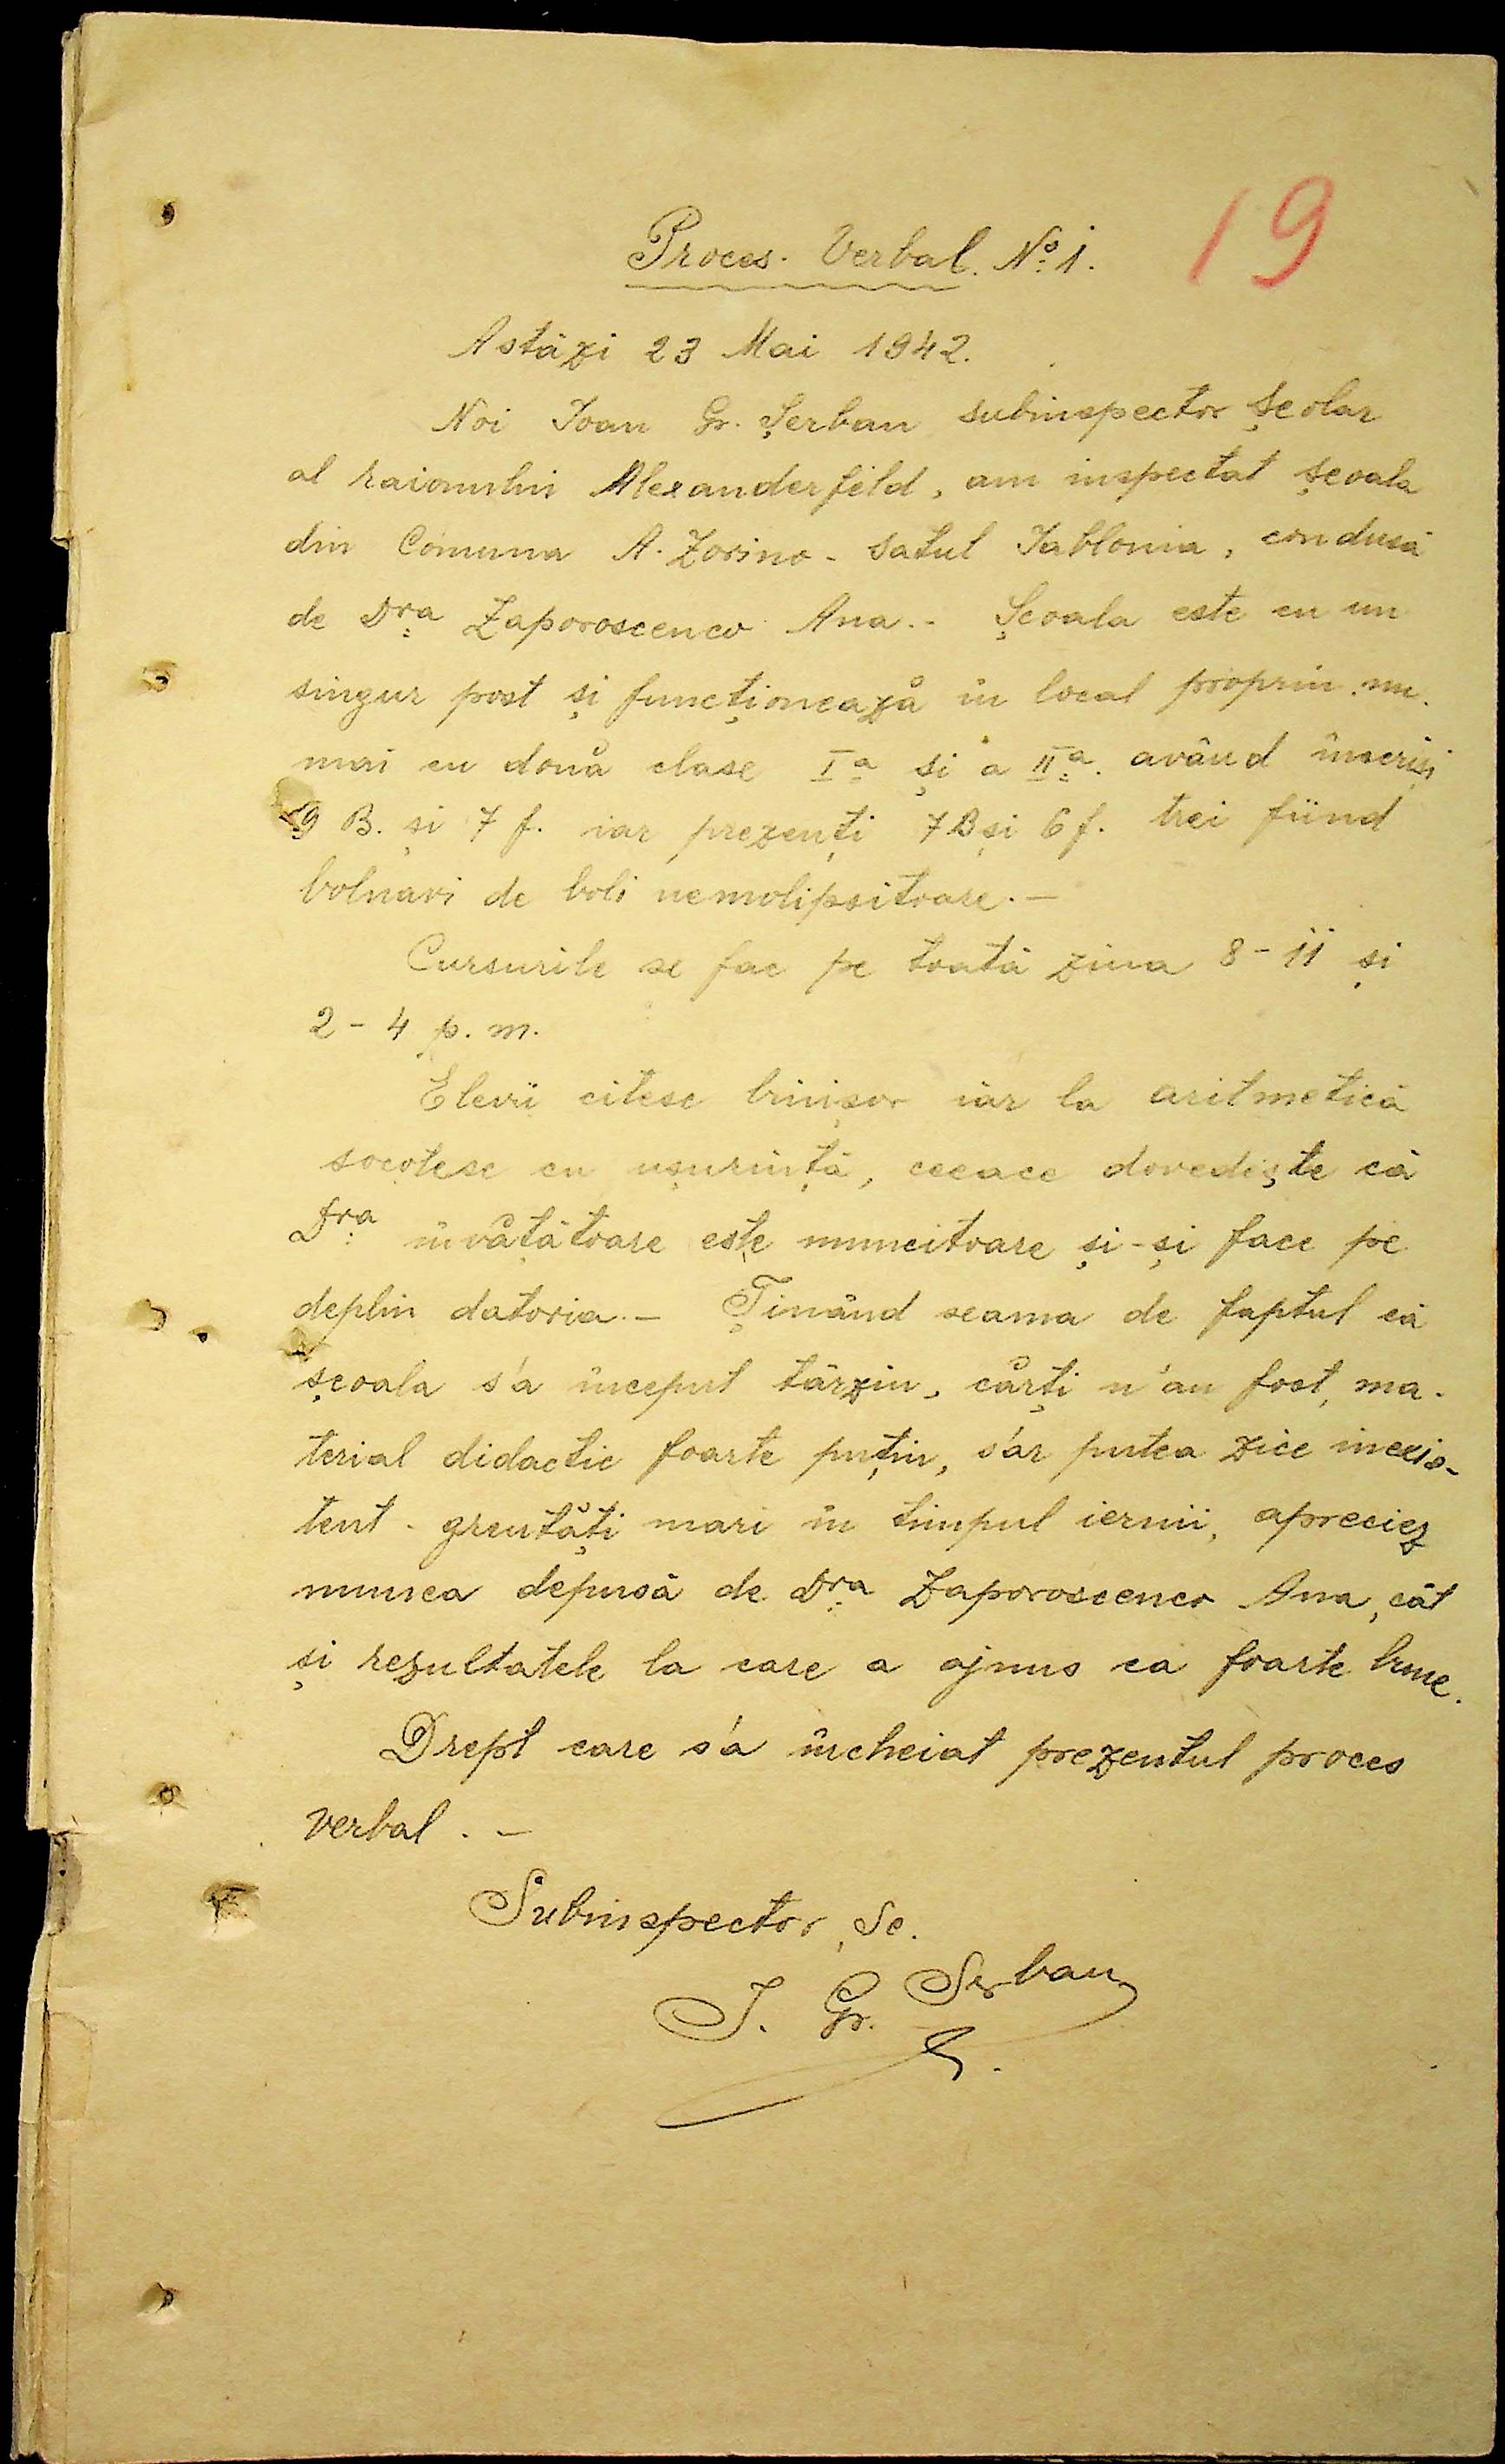 19
Proces. Verbal. Nº 1.
Astăzi 23 Mai 1942.
Noi Ioan Gr. Șerban subinspector Școlar
al raionului Alexanderfeld, am inspectat școala
din Comuna A. Zorino - satul Iablonia, condusă
de Dra Zaporoscenco Ana. - Școala este cu un
singur post și funcționează în local propriu nu-
mai cu două clase Iª și a IIª. având înscriși
9 B. și 7 f. iar prezenți 7 B și 6 f. trei fiind
bolnavi de boli nemolipsitoare. -
Cursurile se fac pe toată ziua 8 - 11 și
2 - 4 p. m.
Elevii citesc binișor iar la aritmetică
socotesc cu ușurință, ceeace dovedește că
Dra învățătoare este muncitoare și-și face pe
deplin datoria. - Ținând seama de faptul că
școala s'a început târziu, cărți n'au fost, ma-
terial didactic foarte puțin, s'ar putea zice inexis-
tent - greutăți mari în timpul iernii, apreciez
munca depusă de Dra Zaporoscenco Ana, cât
și rezultatele la care a ajuns ca foarte bune.
Drept care s'a încheiat prezentul proces
verbal. -
Subinspector, Sc.
I. Gr. Serban